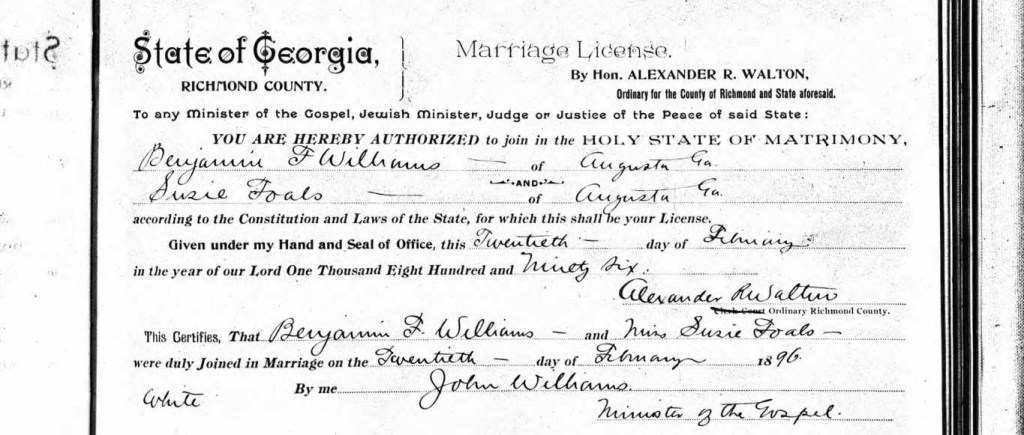 State of Georgia,
RICHMOND COUNTY.
Marriage License.
By Hon. ALEXANDER R. WALTON,
Ordinary for the County of Richmond and State aforesaid.
To any Minister of the Gospel, Jewish Minister, Judge or Justice of the Peace of said State:
YOU ARE HEREBY AUTHORIZED to join in the HOLY STATE OF MATRIMONY,
Benjamin F Williams — of Augusta Ga.
AND
Susie Foals — of Augusta Ga.
according to the Constitution and Laws of the State, for which this shall be your License.
Given under my Hand and Seal of Office, this Twentieth — day of February
in the year of our Lord One Thousand Eight Hundred and Ninety Six.
Alexander R Walton
Clerk Court Ordinary Richmond County.
This Certifies, That Benjamin F. Williams — and Miss Susie Foals —
were duly Joined in Marriage on the Twentieth — day of February 1896.
By me John Williams.
White
Minister of the Gospel.